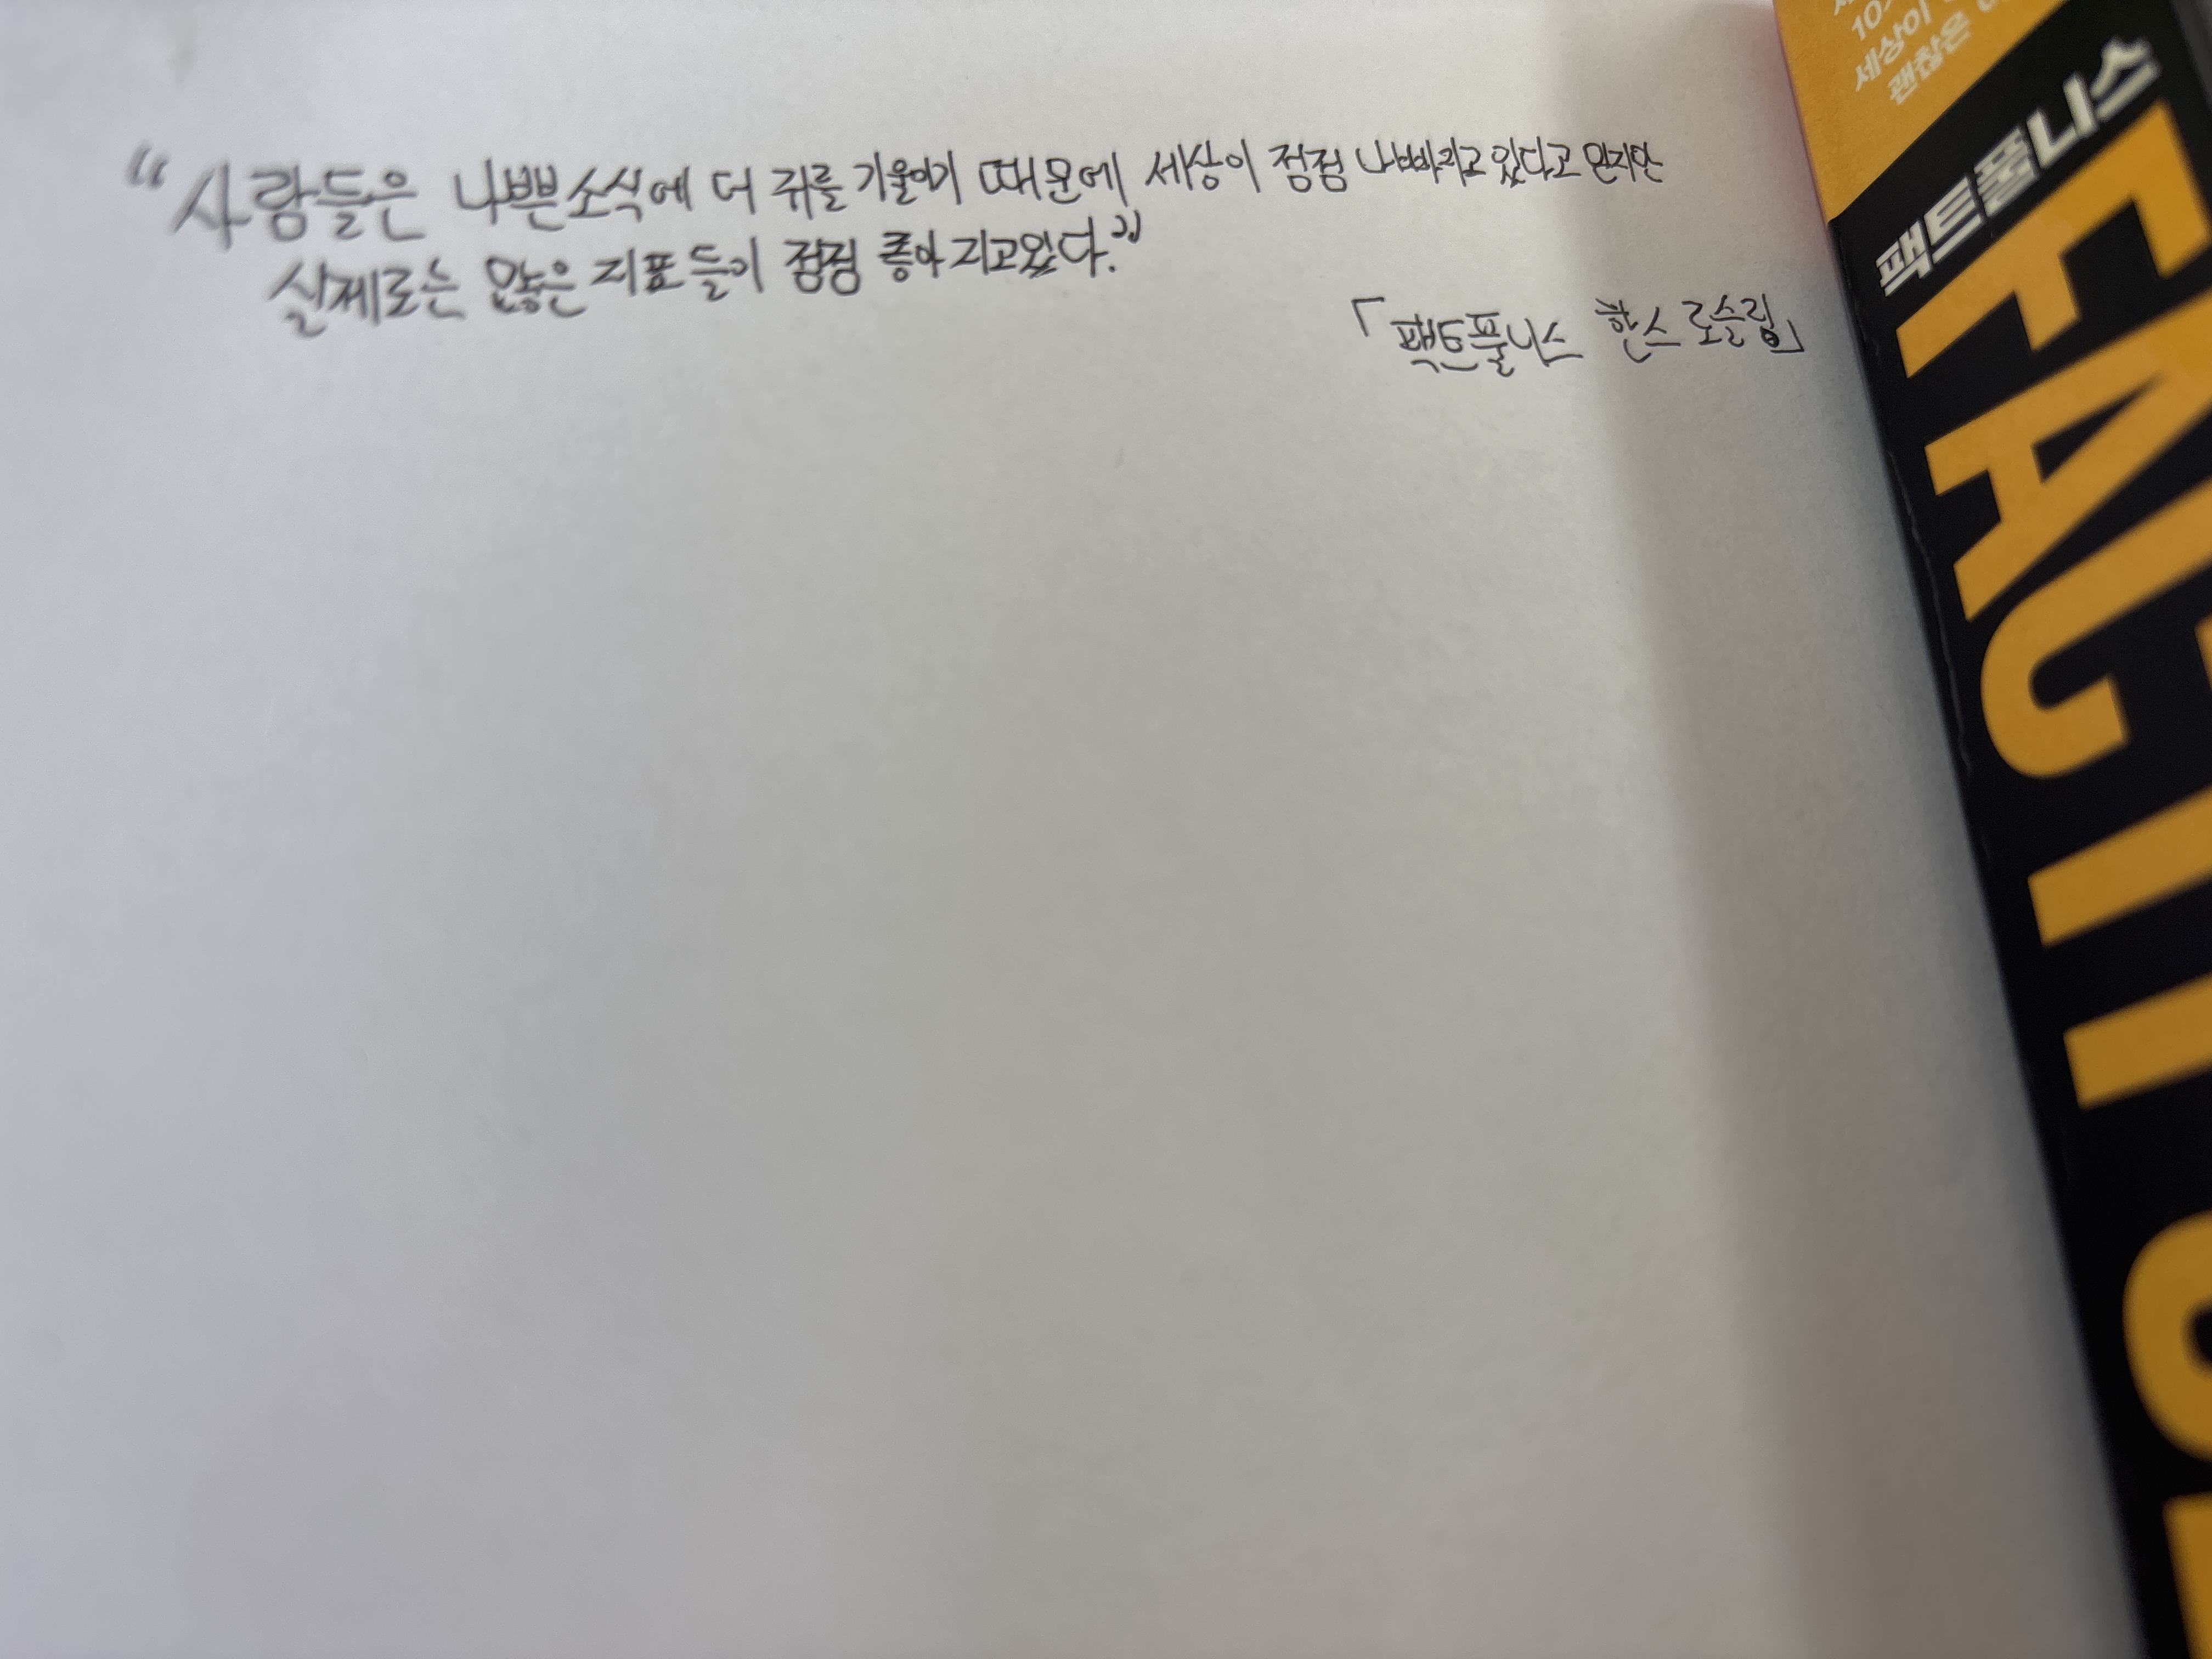 “사람들은 나쁜소식에 더 귀를 기울이기 때문에 세상이 점점 나빠지고 있다고 믿지만
실제로는 많은 지표들이 점점 좋아지고있다.”
「팩트풀니스 한스 로슬링」
세상이
괜찮은
팩트풀니스